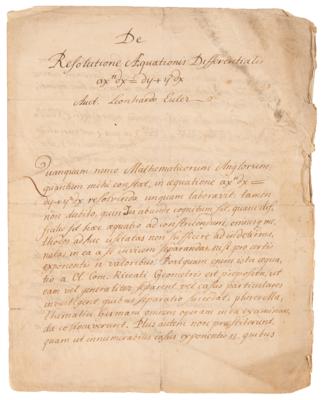 De
Resolutione Æquationis Differentialis
ax^n dx = dy + y² dx
Auct. Leonhardo Euler
Quanquam nemo Mathematicorum Anglorum,
quantum mihi constat, in æquatione ax^n dx =
dy + y² dx resolvenda unquam laboravit: tamen
non dubito, quin
sit hæc æquatio ad construendum, omnesque
methodos adhuc usitatas non sufficere ad indeterminatas
in ea a se invicem separandas nisi pro certis
exponentis n valoribus. Postquam enim ista æqua-
tio a Com. Riccati Geometris est proposita, ut
eam vel generaliter, vel casus particulares
investigent quibus separatio succedat, plures
Hermanni omnem operam in ea examinan-
da collocaverunt. Plus autem non præstiterunt
quam ut innumerabiles casus exponentis n, quibus